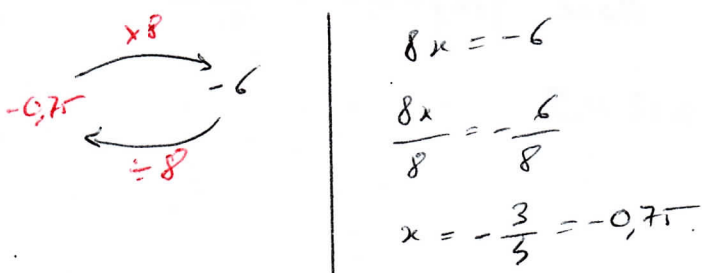 ×8
-0,75
-6
÷8
8x = -6
8x/8 = -6/8
x = -3/5 = -0,75.